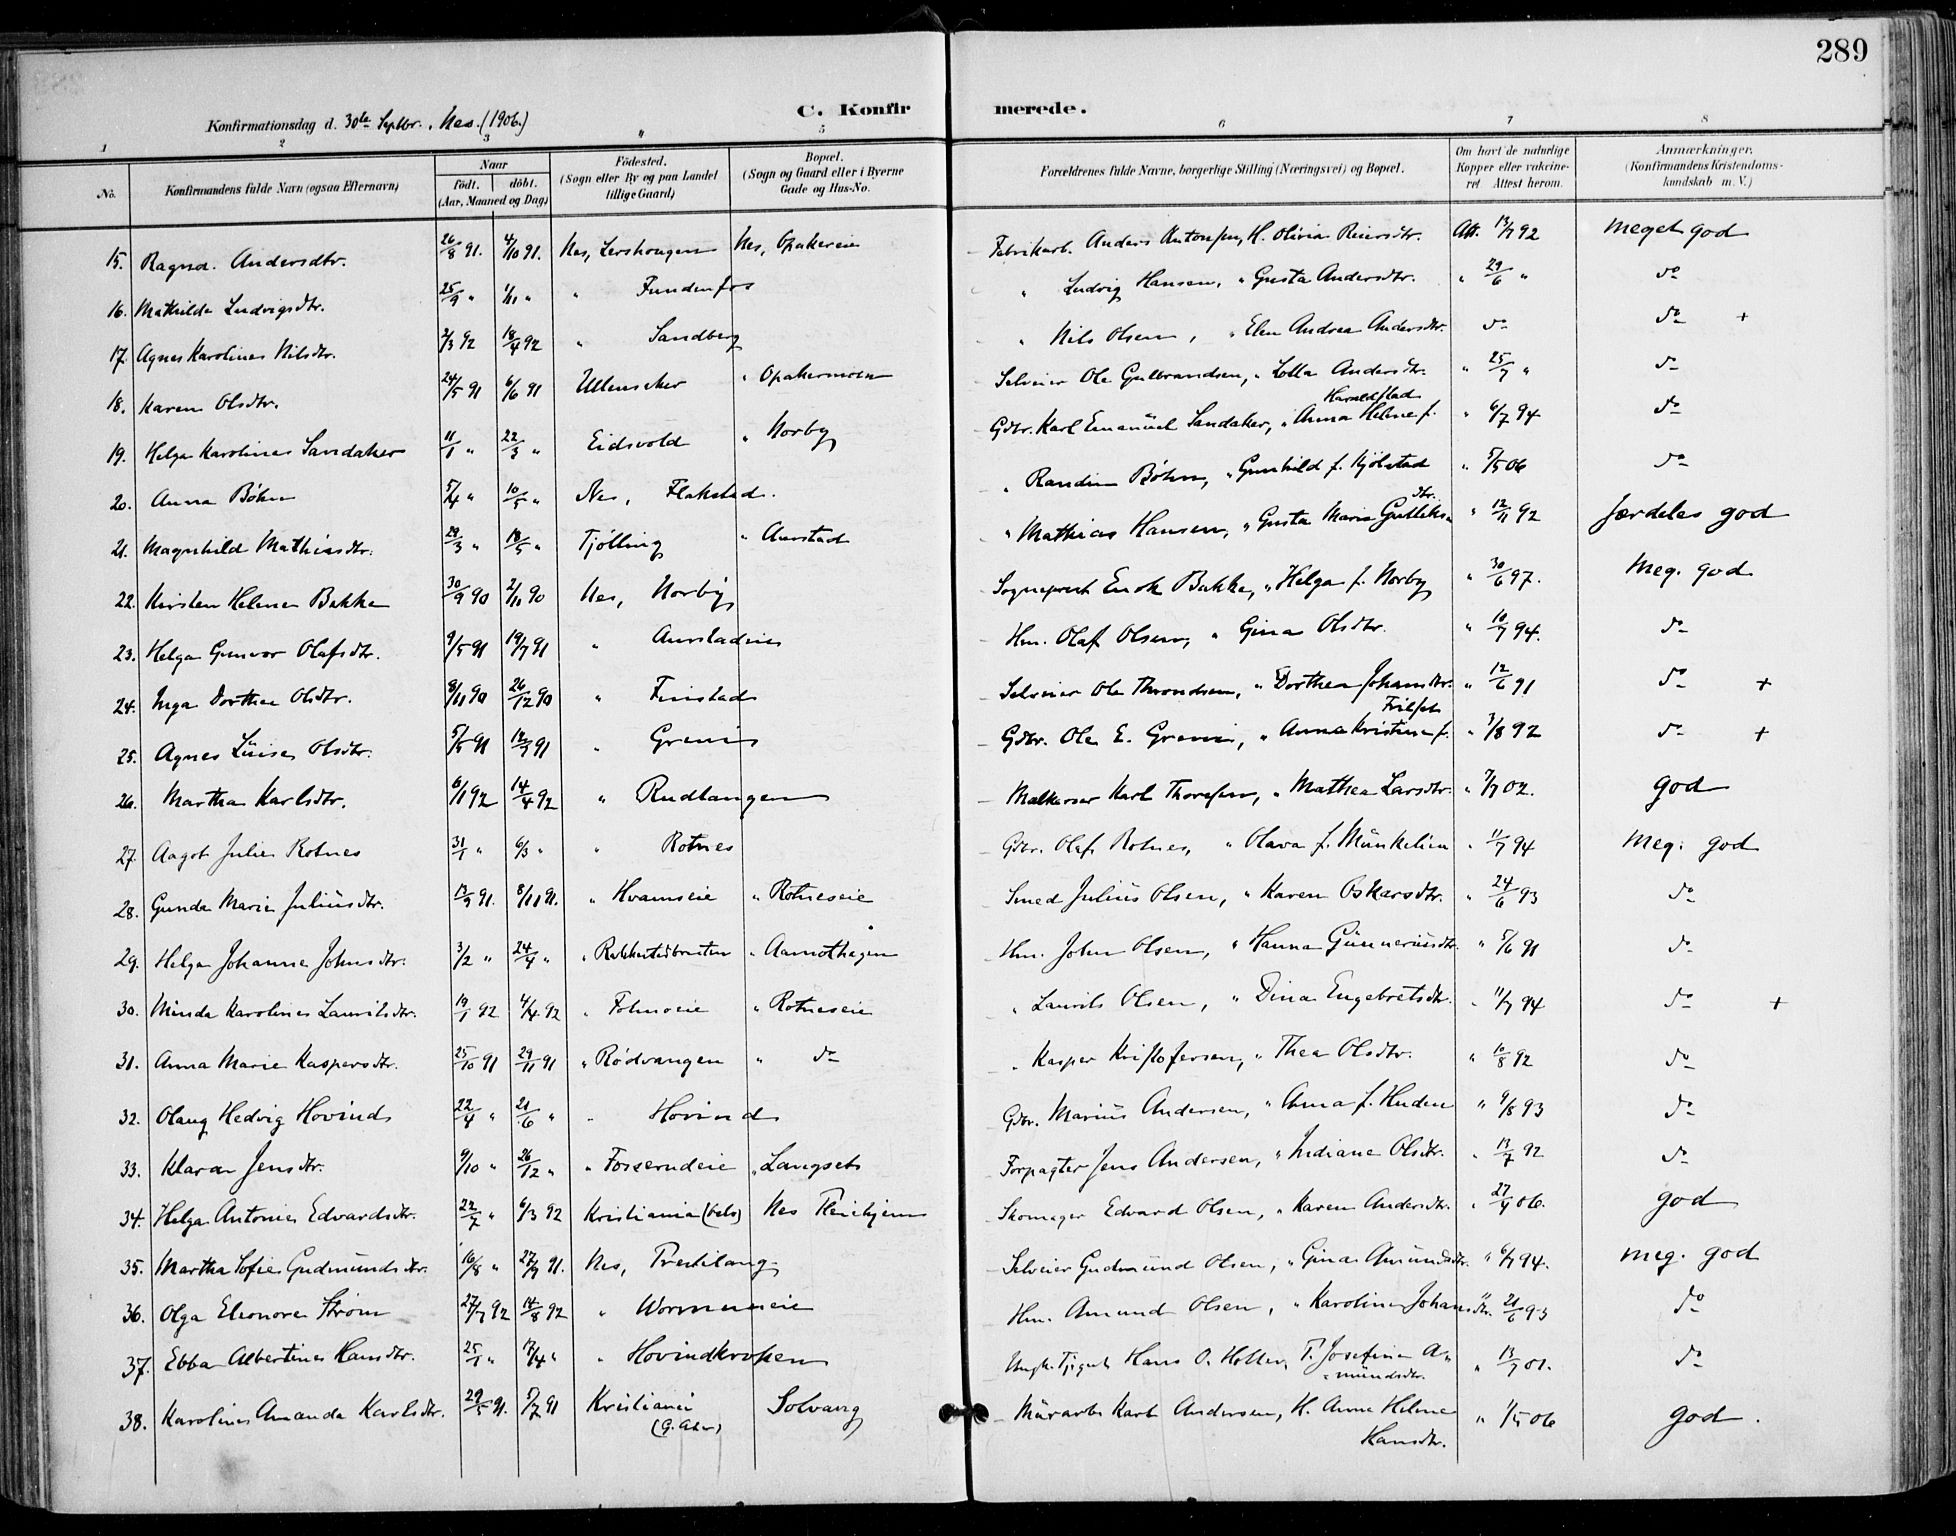 289
C. Konfirmerede.
Konfirmationsdag d. 30te Septbr. Nes. (1906.)
1 2 3 " 5 6 7 8
No. Konfirmandens fulde Navn (ogsaa Efternavn) Naar født. døbt. (Aar, Maaned og Dag) Fødested. (Sogn eller By og paa Landet tillige Gaard) Bopæl. (Sogn og Gaard eller i Byerne Gade og Hus-No. Forældrenes fulde Navne, borgerlige Stilling (Næringsvei) og Bopæl. Om havt de naturlige Kopper eller vakcineret. Attest herom. Anmærkninger. (Konfirmandens Kristendomskundskab m. V.)
15. Ragna Andersdtr. 26/8 91. 4/10 91. Nes, Nes, Opakereie Fabrikarb. Anders Antonsen, H. Olivia Reiersdtr. Att. 13/7 92 Meget god
16. Mathilde Ludvigsdtr. 25/9 " 1/11 " " Fundenfos " Ludvig Hansen, " Gusta Andersdtr. " 29/6 " do
17. Agnes Karoline Nilsdtr. 2/3 92 18/4 92 " Sandberg " Nils Olsen, " Elen Andrea Andersdtr. do do +
18. Karen Olsdtr. 24/5 91 6/6 91 Ullensaker " Opakermoen Selveier Ole Gulbrandsen, " Lolla Andersdtr. " 25/7 " do
19. Helga Karoline Sandaker 11/1 " 22/3 " Eidsvold " Norby Gdbr. Karl Emanuel Sandaker, " Anna Helene f. Haraldstad " 6/7 94 do
20. Anna Bøhn 5/4 " 10/5 " Nes, Flakstad. " Randin Bøhn, " Gunhild f. Kjølstad " 5/5 06 do
21. Magnhild Mathiasdtr. 29/3 " 18/5 " Tjølling " Aurstad " Mathias Hansen, " Gusta Marie Gulliksdtr. " 12/11 92 særdeles god
22. Kirsten Helene Bakke 30/9 90 2/11 90 Nes, Norby Sogneprest Enok Bakke, " Helga f. Norby " 30/6 97. Meg. god
23. Helga Gunvor Olafsdtr. 9/5 91 19/7 91 " Aurstadeie Hm. Olaf Olsen, " Gina Olsdtr. " 10/7 94. do
24. Inga Dorthea Olsdtr. 8/11 90 26/12 90 " Finstad Selveier Ole Throndsen, " Dorthea Johansdtr. " 12/6 91 do +
25. Agnes Luise Olsdtr. 5/5 91 12/7 91 " Greni Gdbr. Ole E. Greni, " Anna Kristine f. Frilset " 3/8 92 do +
26. Martha Karlsdtr. 6/1 92 14/4 92 " Rudlangen Karl Thoresen, " Mathea Larsdtr. " 7/7 02. god
27. Aagot Julie Rotnes 31/1 " 6/3 " " Rotnes Gdbr. Olaf Rotnes, " Olava f. Munkelien " 11/7 94 Meg. god
28. Gunda Marie Juliusdtr. 13/9 91. 8/11 91. " Hvamseie " Rotneseie Smed Julius Olsen, " Karen Oskarsdtr. " 24/6 93 do
29. Helga Johanne Johnsdtr. 3/2 " 24/4 " " " Aamothagen Hm. John Olsen, " Hanna Gunneriusdtr. " 5/6 91 do
30. Minda Karoline Lauritsdtr. 19/1 92 4/4 92 " Folmoeie " Rotneseie " Laurits Olsen, " Dina Engebretsdtr. " 11/7 94 do +
31. Anna Marie Kaspersdtr. 25/10 91 29/11 91 " Rødvangen " do " Kasper Kristofersen, " Thea Olsdtr. " 10/8 92 do
32. Olaug Hedvig Hovind 22/4 " 21/6 " " Hovind Gdbr. Marius Andersen, " Anna f. Huden " 9/8 93 do
33. Klara Jensdtr. 9/10 " 26/12 " " Fosserudeie " Langset Forpagter Jens Andersen, " Indiane Olsdtr. " 13/7 92 do
34. Helga Antonie Edvardsdtr. 22/7 " 6/3 92 Kristiania (Oslo) Nes Skomager Edvard Olsen, " Karen Andersdtr. " 27/4 06. god
35. Martha Sofie Gudmundsdtr. 16/8 " 27/9 91. Nes, Selveier Gudmund Olsen, " Gina Amundsdtr. " 6/7 94. Meg. god
36. Olga Eleonore Strøm 27/7 92 14/8 92 " Hm. Amund Olsen, " Karoline Johansdtr. " 21/6 93 do
37. Ebba Albertine Hansdtr. 25/1 " 17/4 " " Hovindkroken Ungk. Hans O. Holter, T. Josefine Amundsdtr. " 13/7 01. do
38. Karoline Amanda Karlsdtr. 29/5 91. 5/7 91 Kristiania (G. Aker) Solvang Murarb. Karl Andersen, H. Anne Helene Hansdtr. " 1/5 06 god.